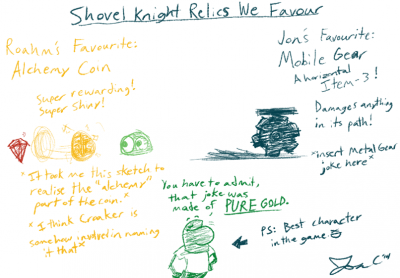 Shovel Knight Relics We Favour
Roahm's Favourite:
Alchemy Coin
Super rewarding!
Super shiny!
*It took me this sketch to
realise the "alchemy"
part of the coin.*
*I think Croaker is
somehow involved in running
it that*
Jon's Favourite:
Mobile Gear
A horizontal
Item-3!
Damages anything
in its path!
*insert Metal Gear
joke here*
You have to admit,
that joke was
made of PURE GOLD.
PS: Best character
in the game